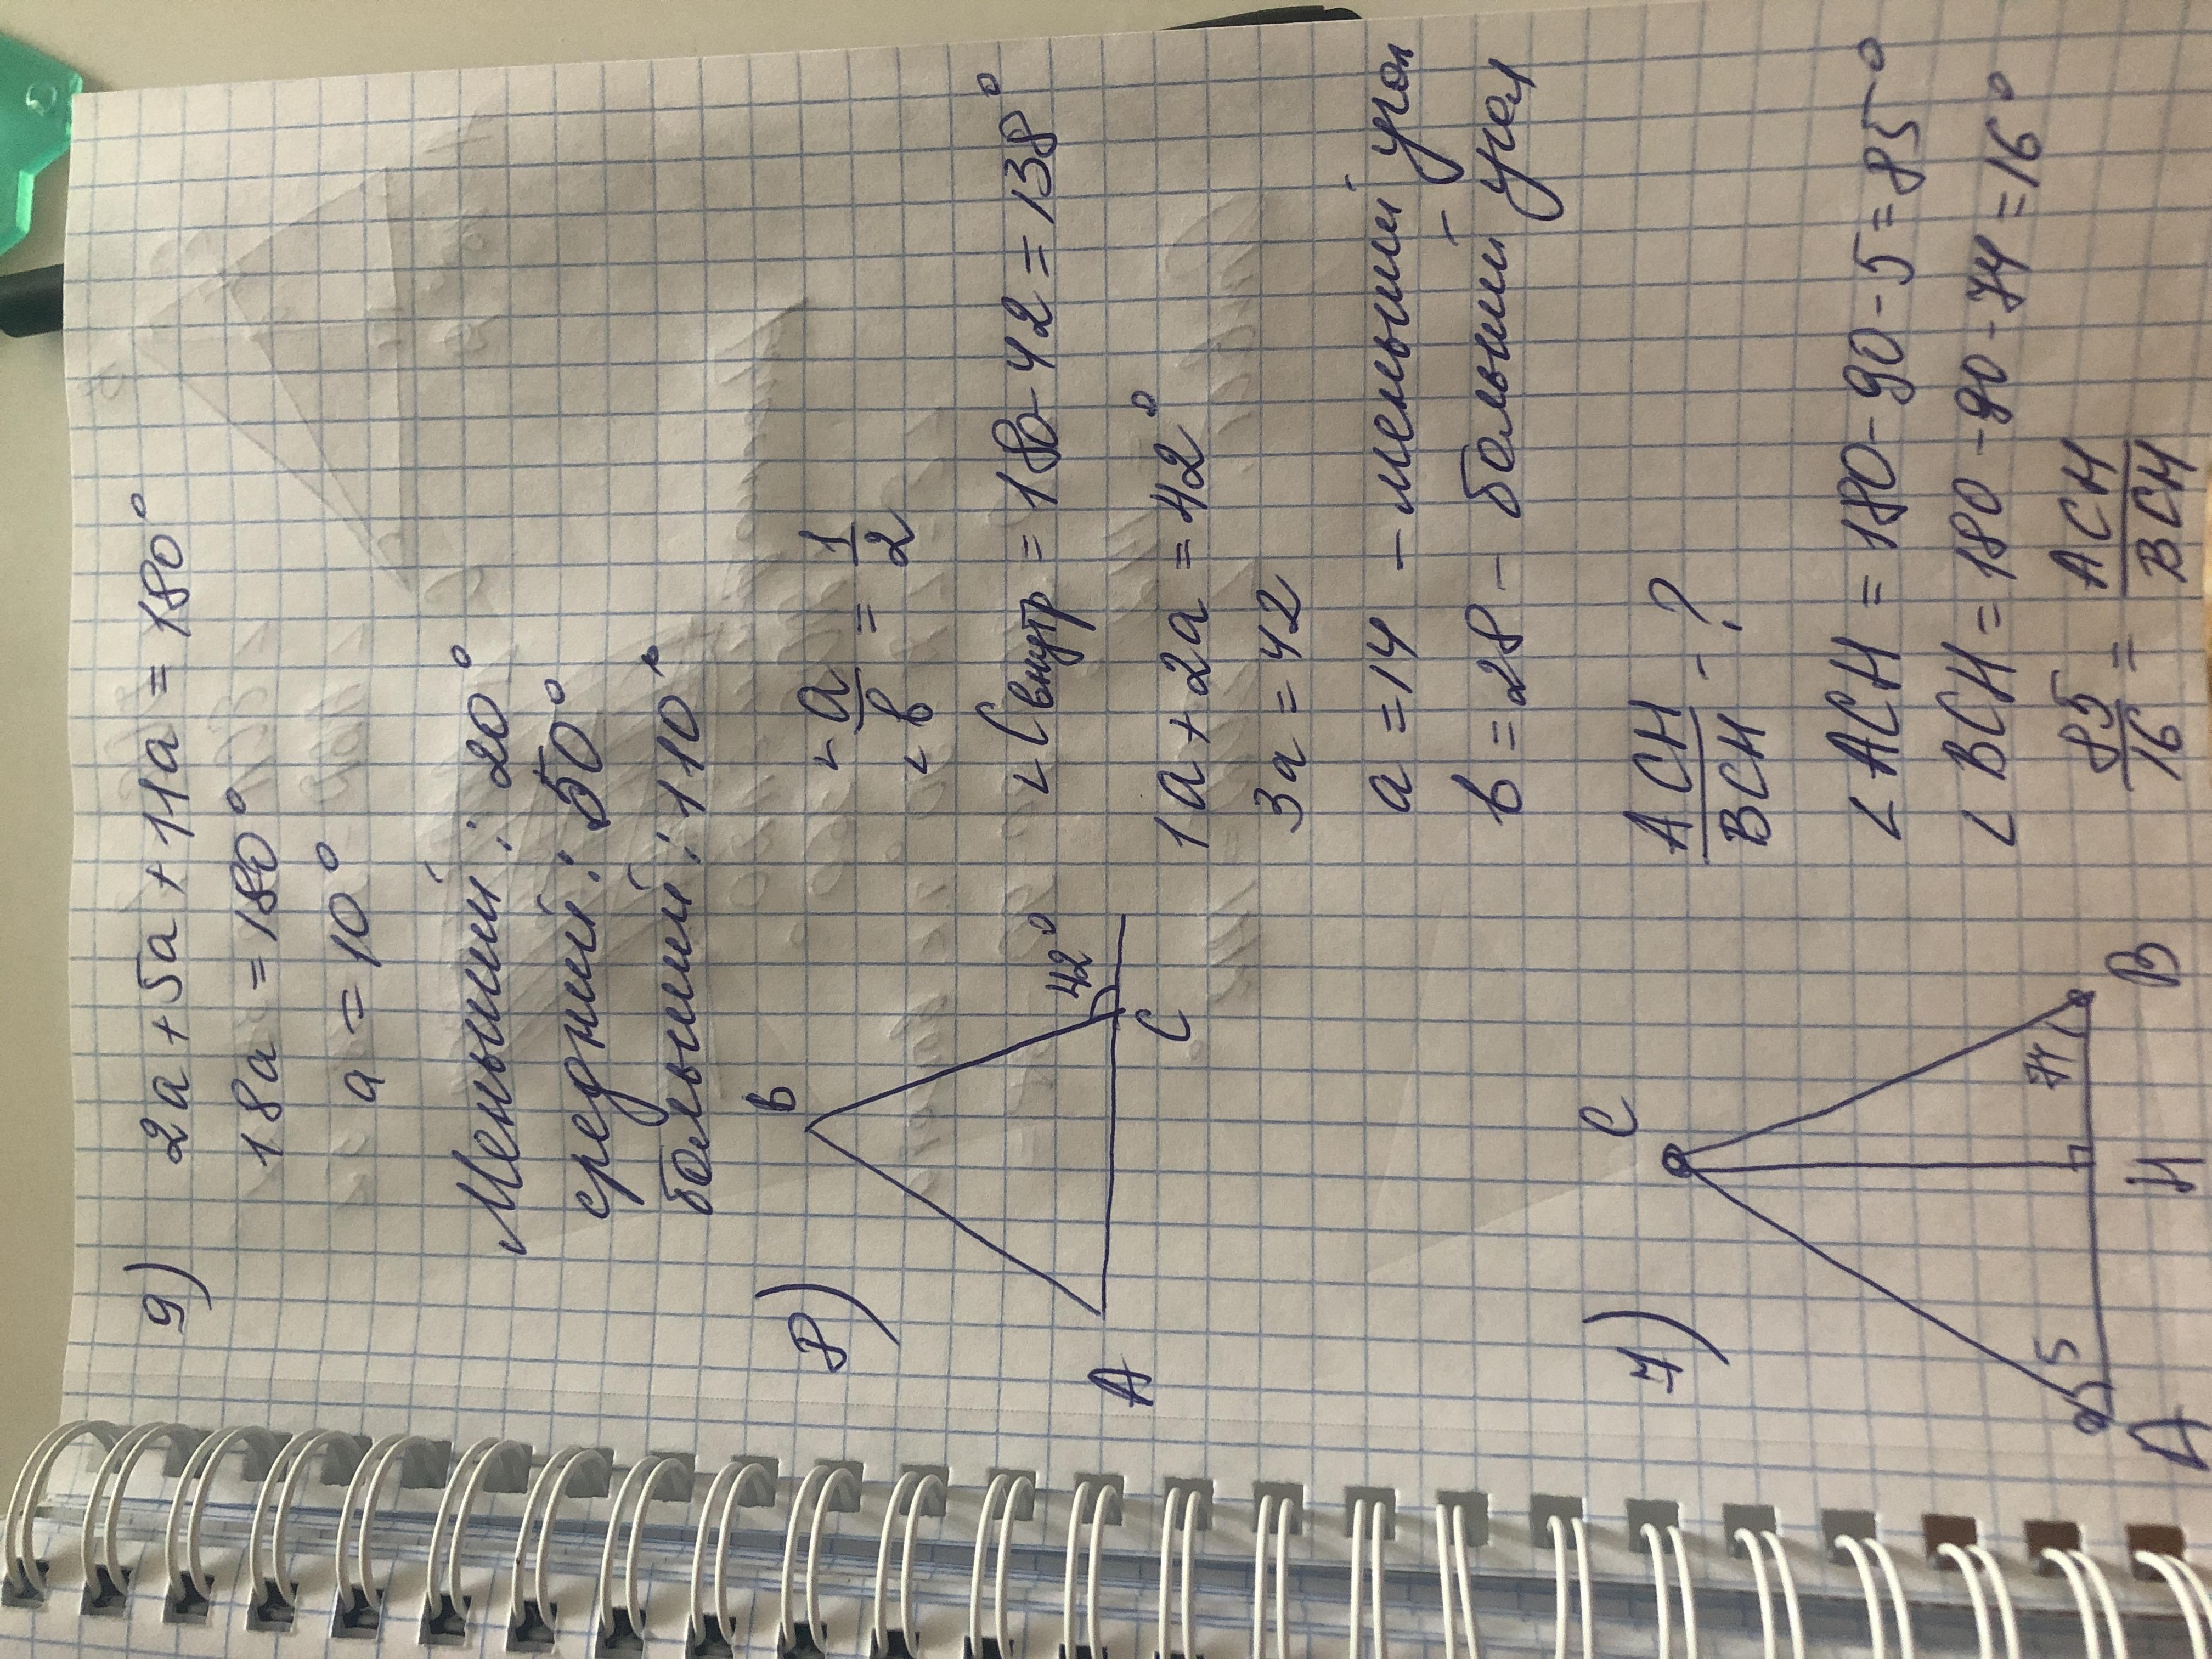 9) 2a + 5a + 11a = 180°
18a = 180°
a = 10°
Меньший : 20°
средний : 50°
больший : 110°
8) ∠a/∠b = 1/2
B
42°
A
C
∠Cвнутр = 180 - 42 = 138°
1a + 2a = 42°
3a = 42
a = 14 - меньший угол
b = 28 - больший угол
7) ACH/BCH - ?
C
5
74
A
H
B
∠ACH = 180 - 90 - 5 = 85°
∠BCH = 180 - 90 - 74 = 16°
85/16 = ACH/BCH